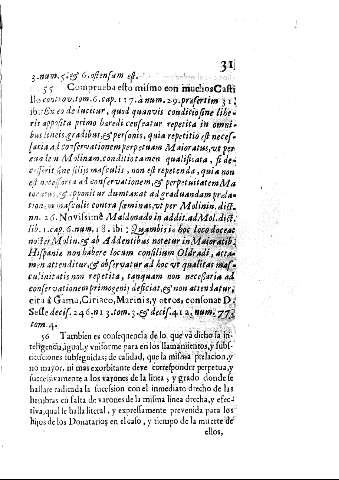 31
3. num. 5. & 6. ostensum est.
55 Comprueba esto mismo con muchos Casti
llo controv. tom. 6. cap. 117. à num. 29. præsertim 31.
ibi: Ex eo deducitur, quod quamvis conditio sine libe-
ris apposita primo hæredi censeatur repetita in omni-
bus lineis, gradibus, & personis, quia repetitio est neces-
saria ad conservationem perpetuam Maioratus, ut per
eundem Molinam. conditio tamen qualificata, si de-
cesserit sine filijs masculis, non est repetenda, quia non
est necessaria ad conservationem, & perpetuitatem Ma
ioratus, & apponitur dumtaxat ad graduandam præla-
tionem masculis contra fæminas, ut per Molin. in. dict.
nn. 26. Novissimè Maldonado in addit. ad Mol. dict.
lib. 1. cap. 6. num. 18. ibi: Quamvis in hoc loco doceat
noster Molin. & ab Addentibus notetur in Maioratib.
Hispaniæ non habere locum consilium Oldradi, atta-
men attenditur, & observatur ad hoc ut qualitas mas-
culinitatis non repetita, tanquam non necessaria ad
conservationem primogenij deficiat, & non attendatur,
cita à Gama, Ciriaco, Marinis, y otros, consonat D.
Sesse decis. 246. n. 13. tom. 3. & decis. 412. num. 77.
tom. 4.
56 Tambien es consequencia de lo que và dicho la in-
teligencia, igual, y uniforme para en los llamamientos, y subs-
tituciones subseguidas; de calidad, que la misma prelacion, y
no mayor, ni mas exorbitante deve corresponder perpetua, y
successivamente à los varones de la linea, y grado donde se
hallare radicada la sucession con el inmediato drecho de las
hembras en falta de varones de la misma linea drecha, y efec-
tiva, qual se halla literal, y expressamente prevenida para los
hijos de los Donatarios en el caso, y tiempo de la muerte de
ellos,